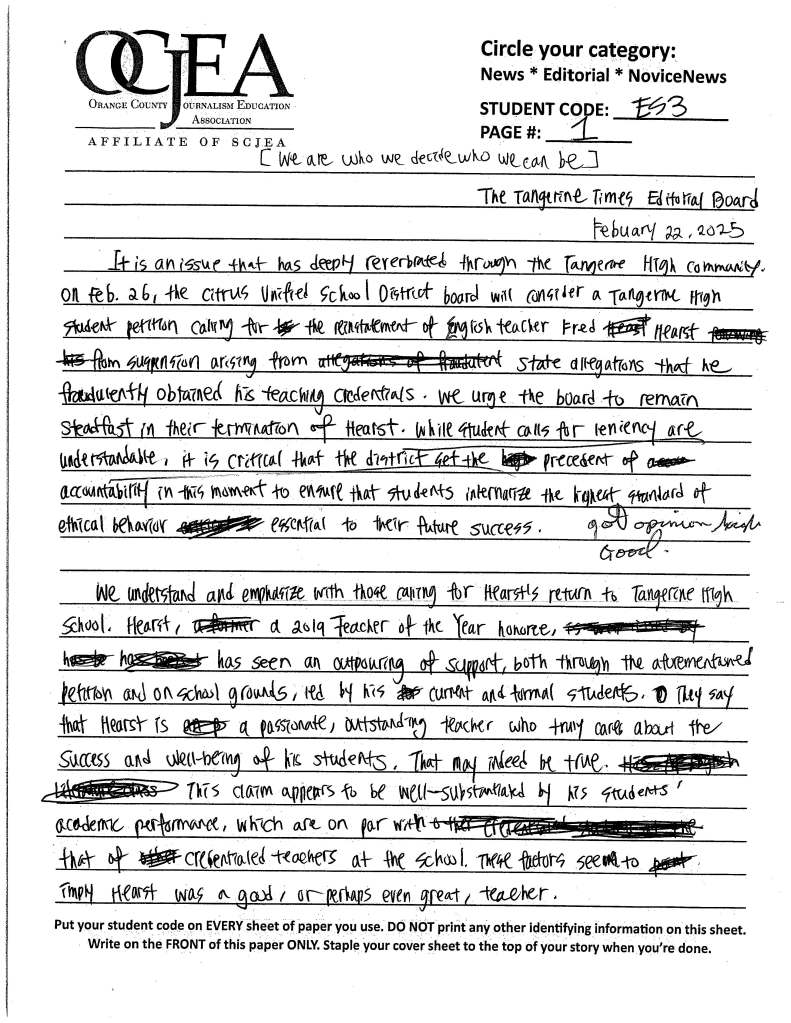 OCJEA
ORANGE COUNTY JOURNALISM EDUCATION
ASSOCIATION
AFFILIATE OF SCJEA
Circle your category:
News * Editorial * NoviceNews
STUDENT CODE: ES3
PAGE #: 1
[We are who we decide who we can be]
The Tangerine Times Editorial Board
Febuary 22, 2025
It is an issue that has deeply reverbrated through the Tangerine High community.
On Feb. 26, the Citrus Unified School District board will consider a Tangerine High
student petition calling for the reinstatement of English teacher Fred Hearst
from suspension arising from state allegations that he
fraudulently obtained his teaching credentials. We urge the board to remain
steadfast in their termination of Hearst. While student calls for leniency are
understandable, it is critical that the district set the precedent of
accountability in this moment to ensure that students internalize the highest standard of
ethical behavior essential to their future success. got opinion
Good.
We understand and emphasize with those calling for Hearst's return to Tangerine High
School. Hearst, a 2019 Teacher of the Year honoree,
has seen an outpouring of support, both through the aforementioned
petition and on school grounds, led by his current and formal students. They say
that Hearst is a passionate, outstanding teacher who truly cares about the
success and well-being of his students. That may indeed be true.
This claim appears to be well-substantiated by his students'
academic performance, which are on par with
that of credentialed teachers at the school. These factors seem to
imply Hearst was a good, or perhaps even great, teacher.
Put your student code on EVERY sheet of paper you use. DO NOT print any other identifying information on this sheet.
Write on the FRONT of this paper ONLY. Staple your cover sheet to the top of your story when you're done.